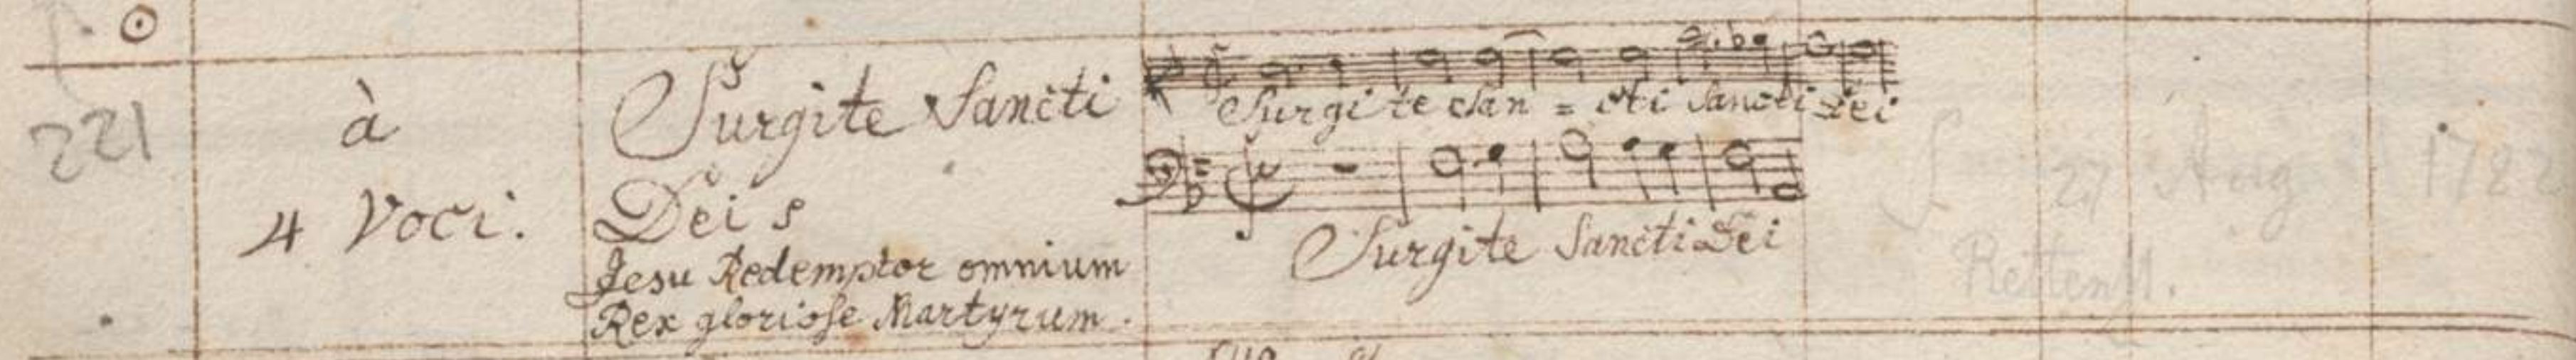 221
à
4 Voci.
Surgite Sancti
Dei s
Jesu Redemptor omnium
Rex gloriose Martyrum.
Surgite San = cti Sancti Dei
Surgite Sancti Dei
27 Aug 1782